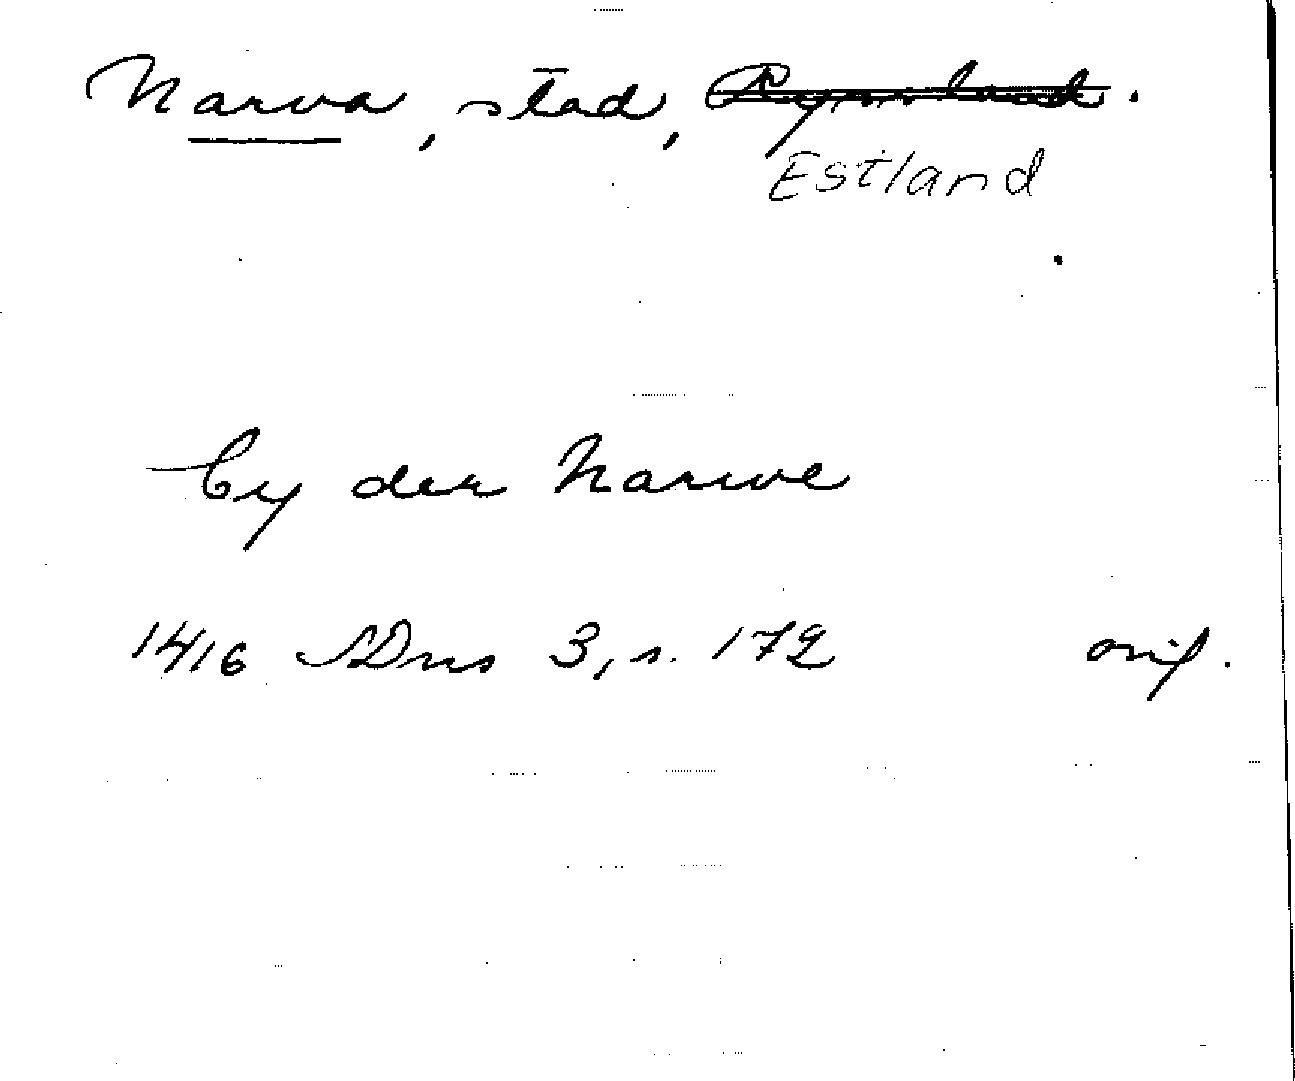 Narva, stad, Ryssland.
Estland
by der Narwe
1416 SDns 3, s. 172 orig.